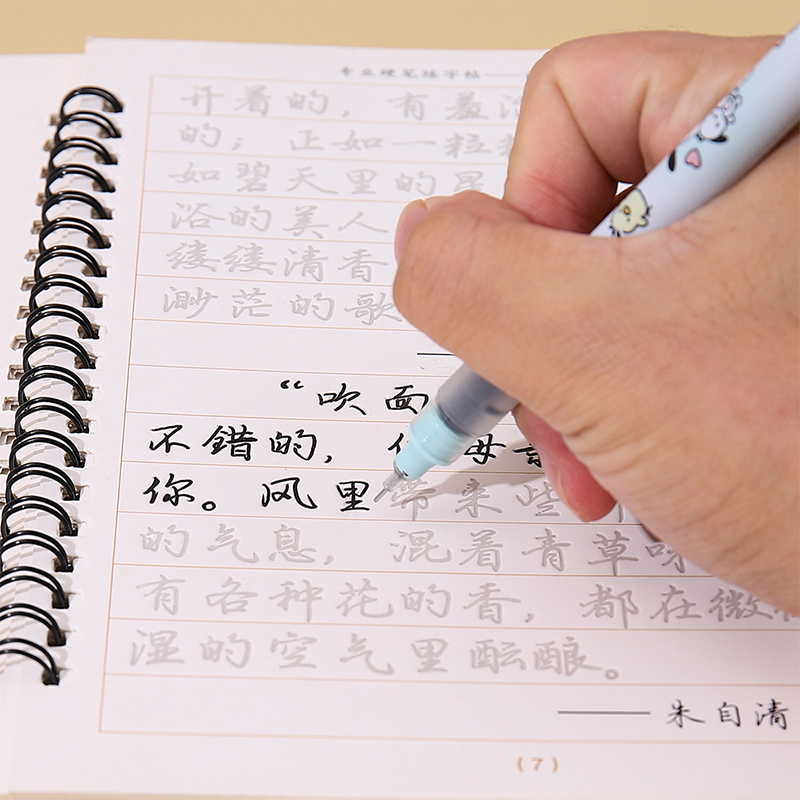 专业硬笔练字帖——
开着的，有羞涩
的；正如一粒粒
如碧天里的星
浴的美人
缕缕清香
渺茫的歌
——
“吹面
不错的，像母亲
你。风里带来些
的气息，混着青草呀
有各种花的香，都在微
湿的空气里酝酿。
——朱自清
(7)